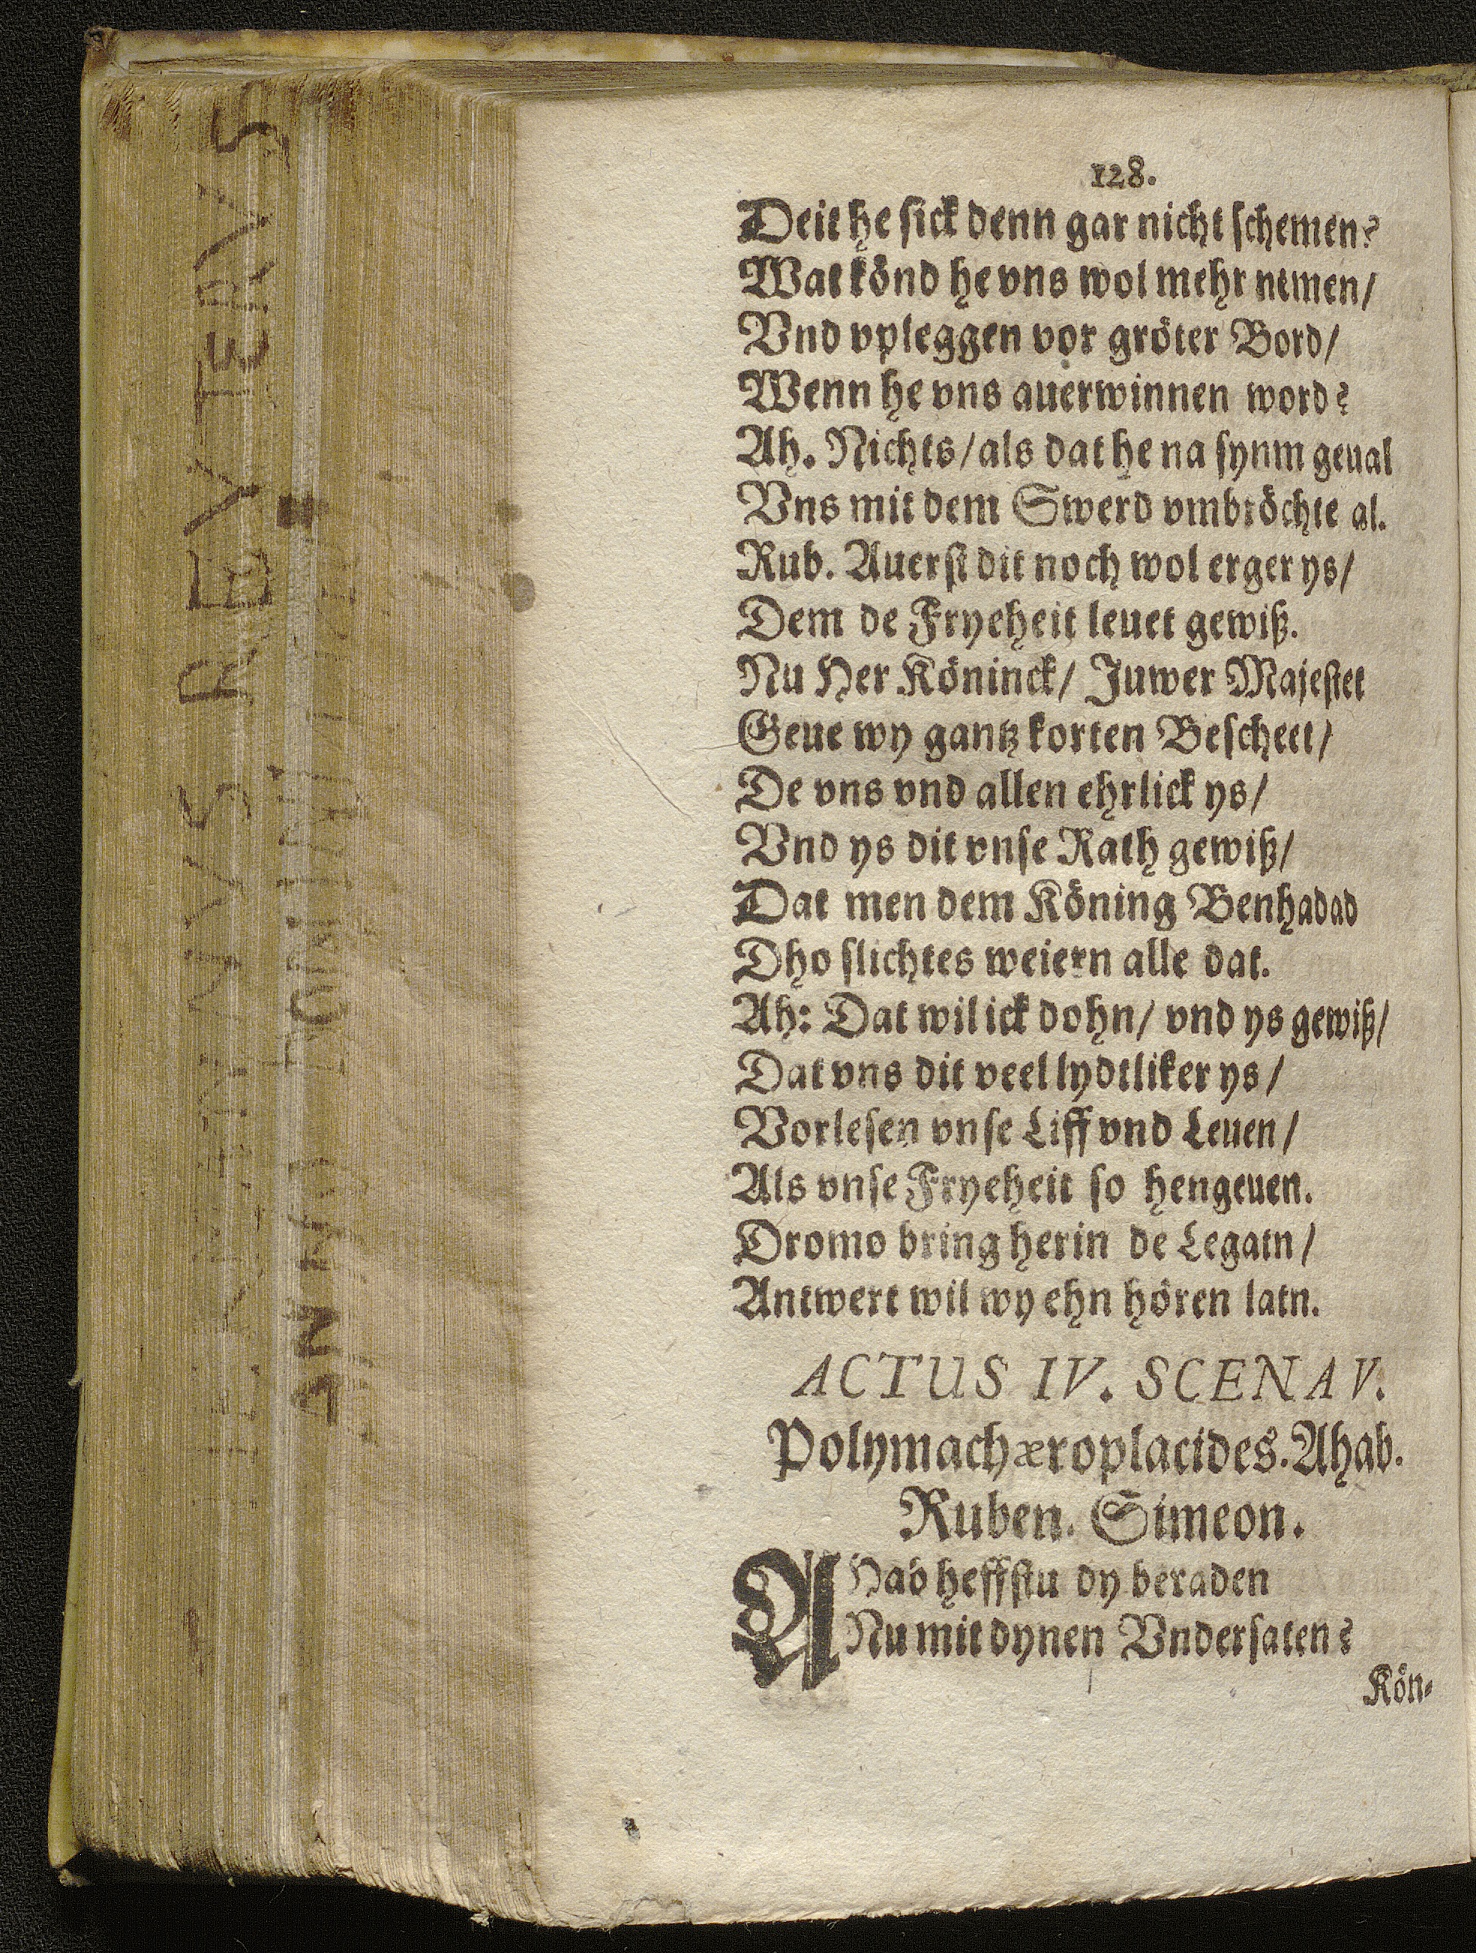 128.
Deit he sick denn gar nicht schemen?
Wat könd he vns wol mehr nemen/
Vnd vpleggen vor gröter Bord/
Wenn he vns auerwinnen word?
Ah. Nichts/ als dat he na synm geual
Vns mit dem Swerd vmbröchte al.
Rub. Auerst dit noch wol erger ys/
Dem de Fryeheit leuet gewiß.
Nu Her Köninck/ Juwer Majestet
Geue wy gantz korten Bescheet/
De vns vnd allen ehrlick ys/
Vnd ys dit vnse Rath gewiß/
Dat men dem Köning Benhadad
Dho slichtes weiern alle dat.
Ah: Dat wil ick dohn/ vnd ys gewiß/
Dat vns dit veel lydtliker ys/
Vorlesen vnse Liff vnd Leuen/
Als vnse Fryeheit so hengeuen.
Dromo bring herin de Legatn/
Antwert wil wy ehn hören latn.
ACTUS IV. SCENA V.
Polymachæroplacides. Ahab.
Ruben. Simeon.
AHab heffstu dy beraden
Nu mit dynen Vndersaten?
Kön-
REVTERVS
ANNO DOMINI